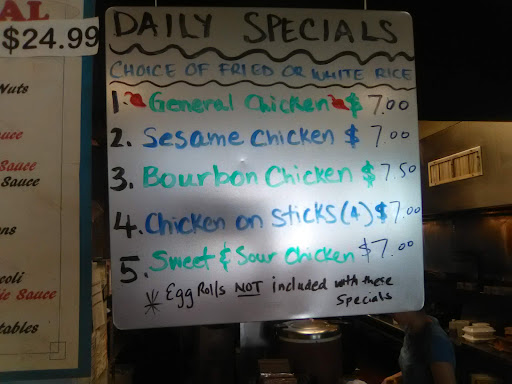 AL
$24.99
Nuts
uce
Sauce
Sauce
ns
coli
ic Sauce
tables
DAILY SPECIALS
CHOICE OF FRIED OR WHITE RICE
1. General Chicken $ 7.00
2. Sesame Chicken $ 7.00
3. Bourbon Chicken $ 7.50
4. Chicken on Sticks (4) $7.00
5. Sweet & Sour Chicken $7.00
* Egg Rolls NOT included with these
Specials